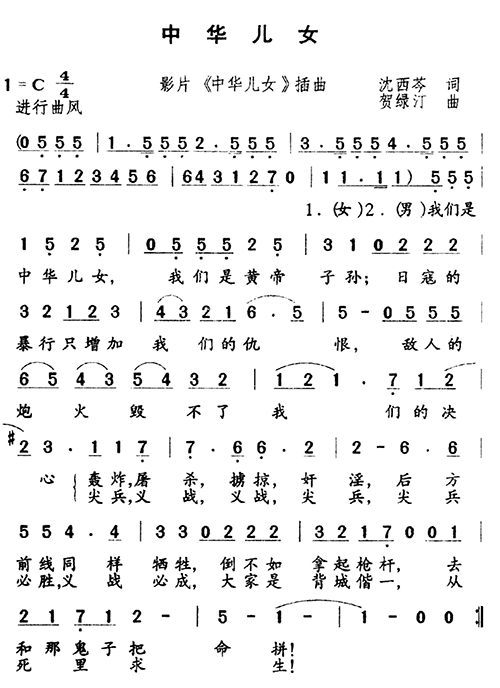 中华儿女
1=C 4/4 影片《中华儿女》插曲 沈西苓 词
进行曲风 贺绿汀 曲
(0 5 5 5 | 1 . 5 5 5 2 . 5 5 5 | 3 . 5 5 5 4 . 5 5 5 |
6 7 1 2 3 4 5 6 | 6 4 3 1 2 7 0 | 1 1 . 1 1) 5 5 5 |
1.(女)2.(男)我们是
1 5 2 5 | 0 5 5 5 5 5 | 3 1 0 2 2 2 |
中华儿女, 我们是黄帝 子孙; 日寇的
3 2 1 2 3 | 4 3 2 1 6 . 5 | 5 - 0 5 5 5 |
暴行只增加 我 们的仇 恨, 敌人的
6 5 4 3 5 4 3 2 | 1 2 1 . 7 1 2 |
炮 火 毁 不了 我 们的决
#2 3 . 1 1 7 | 7 . 6 6 . 2 | 2 - 6 . 6 |
心 轰炸,屠 杀, 掳掠, 奸 淫, 后 方
尖兵,义 战, 义战, 尖 兵, 尖 兵
5 5 4 . 4 | 3 3 0 2 2 2 | 3 2 1 7 0 0 1 |
前线同 样 牺牲, 倒不如 拿起枪杆, 去
必胜,义 战 必成, 大家是 背城偕一, 从
2 1 7 1 2 - | 5 - 1 - | 1 - 0 0 :||
和那鬼子把 命 拼!
死 里 求 生!